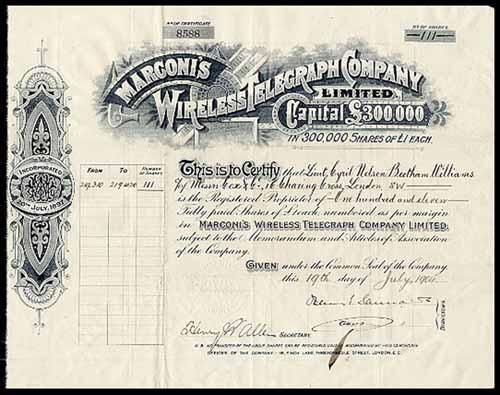 No OF CERTIFICATE
8588
No OF SHARES
111
MARCONI'S
WIRELESS TELEGRAPH COMPANY
LIMITED
Capital £300,000
IN 300,000 SHARES OF £1 EACH.
INCORPORATED
20TH JULY, 1897
FROM TO NUMBER OF SHARES
111
This is to Certify that Lieut. Cyril Nelson Beetham Williams
of Messrs Cox & Co 16 Charing Cross, London SW
is the Registered Proprietor of One hundred and eleven
Fully paid Shares of £1 each numbered as per margin
in MARCONI'S WIRELESS TELEGRAPH COMPANY LIMITED,
subject to the Memorandum and Articles of Association
of the Company.
GIVEN under the Common Seal of the Company
this 19th day of July, 190
Henry W. Allen SECRETARY
DIRECTORS
N.B. NO TRANSFER OF THE ABOVE SHARES CAN BE REGISTERED UNLESS ACCOMPANIED BY THIS CERTIFICATE
OFFICES OF THE COMPANY 18, FINCH LANE, THREADNEEDLE STREET, LONDON, E.C.